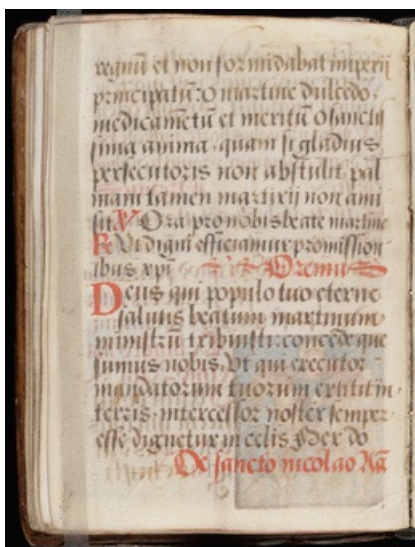 regnū et non formidabat imperij
principatū: O martine dulcedo,
medicamētū et meritū O sanctis
sima anima, quam si gladius
persecutoris non abstulit pal
mam tamen martirij non ami
sit. V Ora pro nobis beate martine
R Vt digni efficiamur promission
ibus xpi Oremus
Deus qui populo tuo eterne
salutis beatum martinum
ministrū tribuisti: concede que
sumus nobis, Vt qui executor
mandatorum tuorum extitit in
terris, intercessor noster semper
esse dignetur in celis Per do
De sancto nicolao Aā